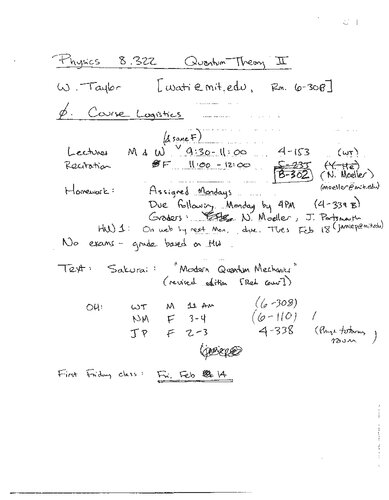 Physics 8.322 Quantum Theory II
W. Taylor [wati@mit.edu, Rm. 6-308]
∅. Course Logistics
(& some F)
Lectures M & W 9:30-11:00 4-153 (WT)
Recitation F 11:00-12:00
8-302 (N. Moeller)
(moeller@mit.edu)
Homework: Assigned Mondays
Due following Monday by 4PM (4-339 B)
Graders: N. Moeller, J.
HW 1: On web by next Mon. due Tues Feb 18 (jamiep@mit.edu)
No exams - grade based on HW.
Text: Sakurai: "Modern Quantum Mechanics"
(revised edition [Red cover])
OH: WT M 11 AM (6-308)
NM F 3-4 (6-110)
JP F 2-3 4-338 (Phys tutoring room)
First Friday class: Fri, Feb 14